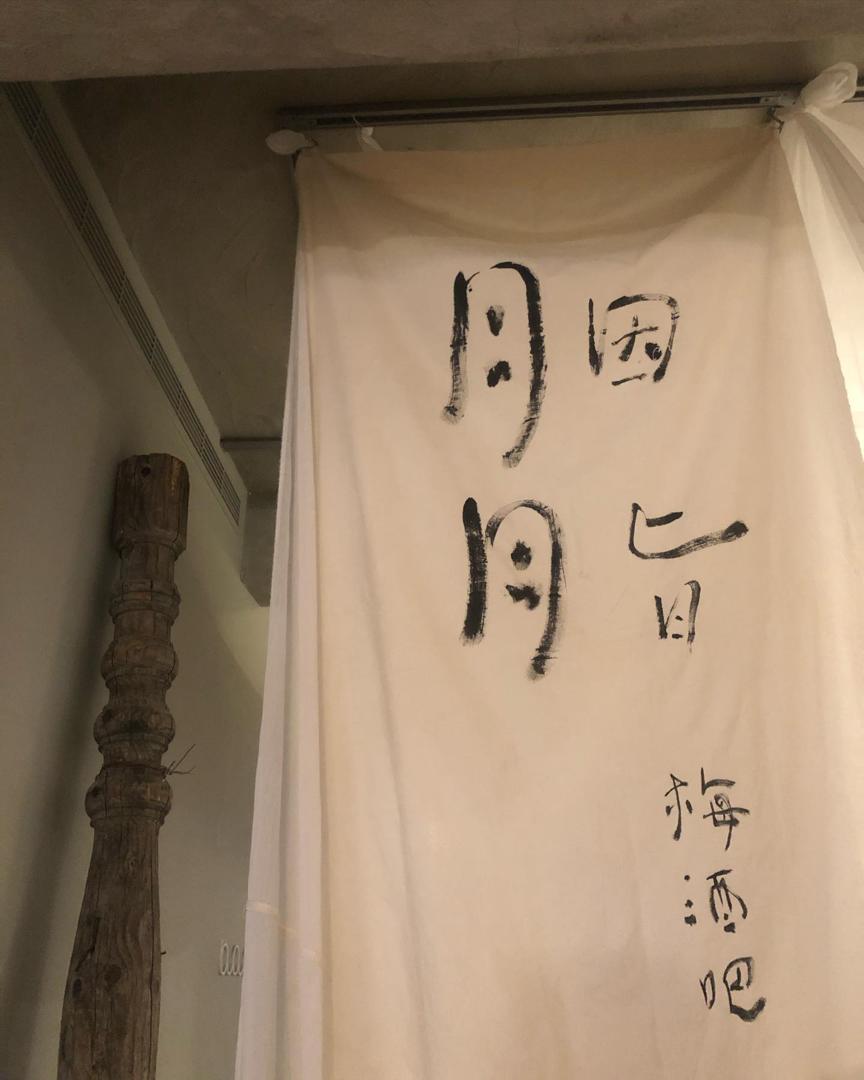 胭脂
梅酒吧